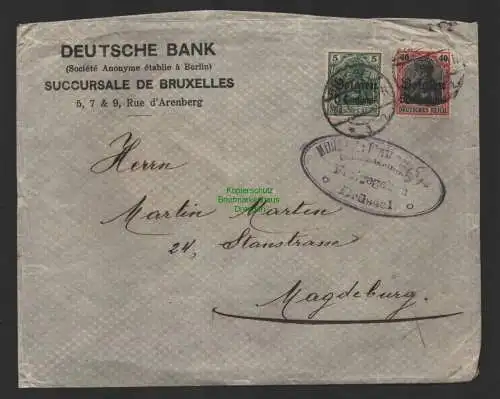 DEUTSCHE BANK
(Société Anonyme établie à Berlin)
SUCCURSALE DE BRUXELLES
5, 7 & 9, Rue d'Arenberg
5 5
Belgien
40 40
Belgien
DEUTSCHES REICH
Freigegeben
Brüssel
Kopierschutz
Briefmarkenhaus
Dresden
Herrn
Martin Marten
24, Stanstrasse
Magdeburg.